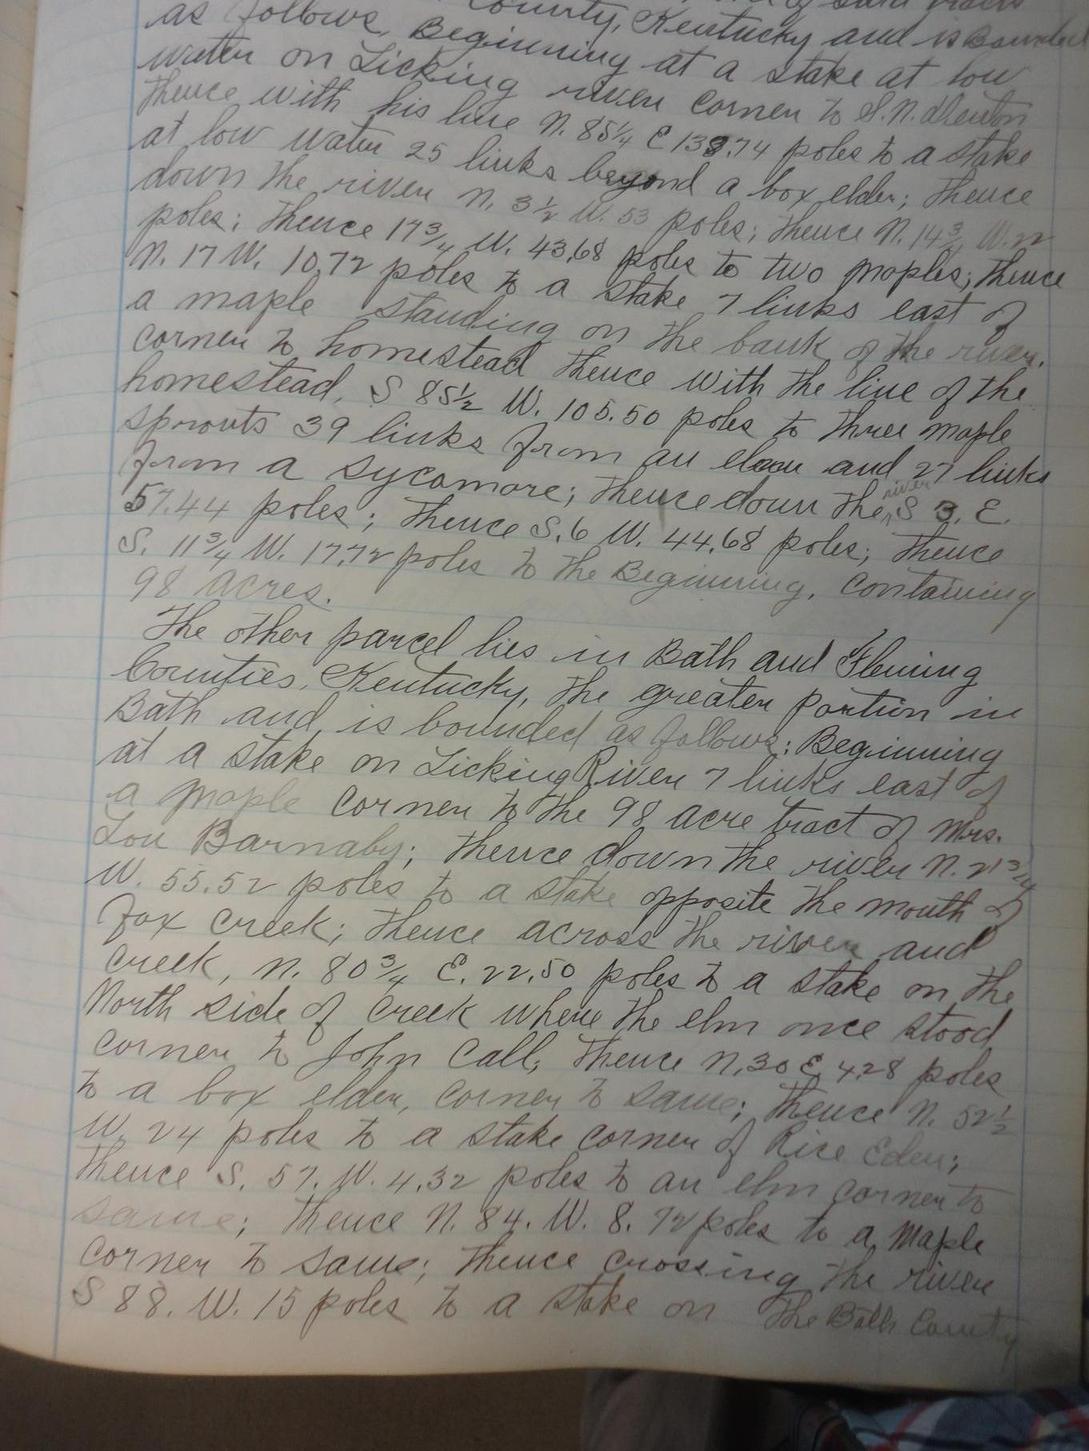 as follows, County, Kentucky and is Bounded
Beginning at a stake at low
water on Licking river corner to S.N.
Thence with his line N. 85¼ E 133.74 poles to a stake
at low water 25 links beyond a box elder; thence
down the river N. 3½ W. 53 poles; thence N. 14¾ W. 22
poles; thence 17¾ W. 43.68 poles to two maples; thence
N. 17 W. 10.72 poles to a stake 7 links east of
a maple standing on the bank of the river,
corner to homestead thence with the line of the
homestead, S 85½ W. 105.50 poles to three maple
sprouts 39 links from an and 27 links
from a sycamore; thence down the river S 3. E.
57.44 poles; thence S. 6 W. 44.68 poles; thence
S. 11¾ W. 17.72 poles to the Beginning, containing
98 acres.
The other parcel lies in Bath and Fleming
Counties, Kentucky, the greater portion in
Bath and is bounded as follows: Beginning
at a stake on Licking River 7 links east of
a maple corner to the 98 acre tract of Mrs.
Lou Barnaby; thence down the river N. 21¾
W. 55.52 poles to a stake opposite the mouth of
Fox creek; thence across the river and
creek, N. 80¾ E. 22.50 poles to a stake on the
North side of creek where the elm once stood
corner to John Call, thence N. 30 E 4.28 poles
to a box elder, corner to same; thence N. 52½
W. 24 poles to a stake corner of Rice Eden;
thence S. 57. W. 4.32 poles to an elm corner to
same; thence N. 84. W. 8.72 poles to a Maple
corner to same; thence crossing the river
S 88. W. 15 poles to a stake on the Bath County